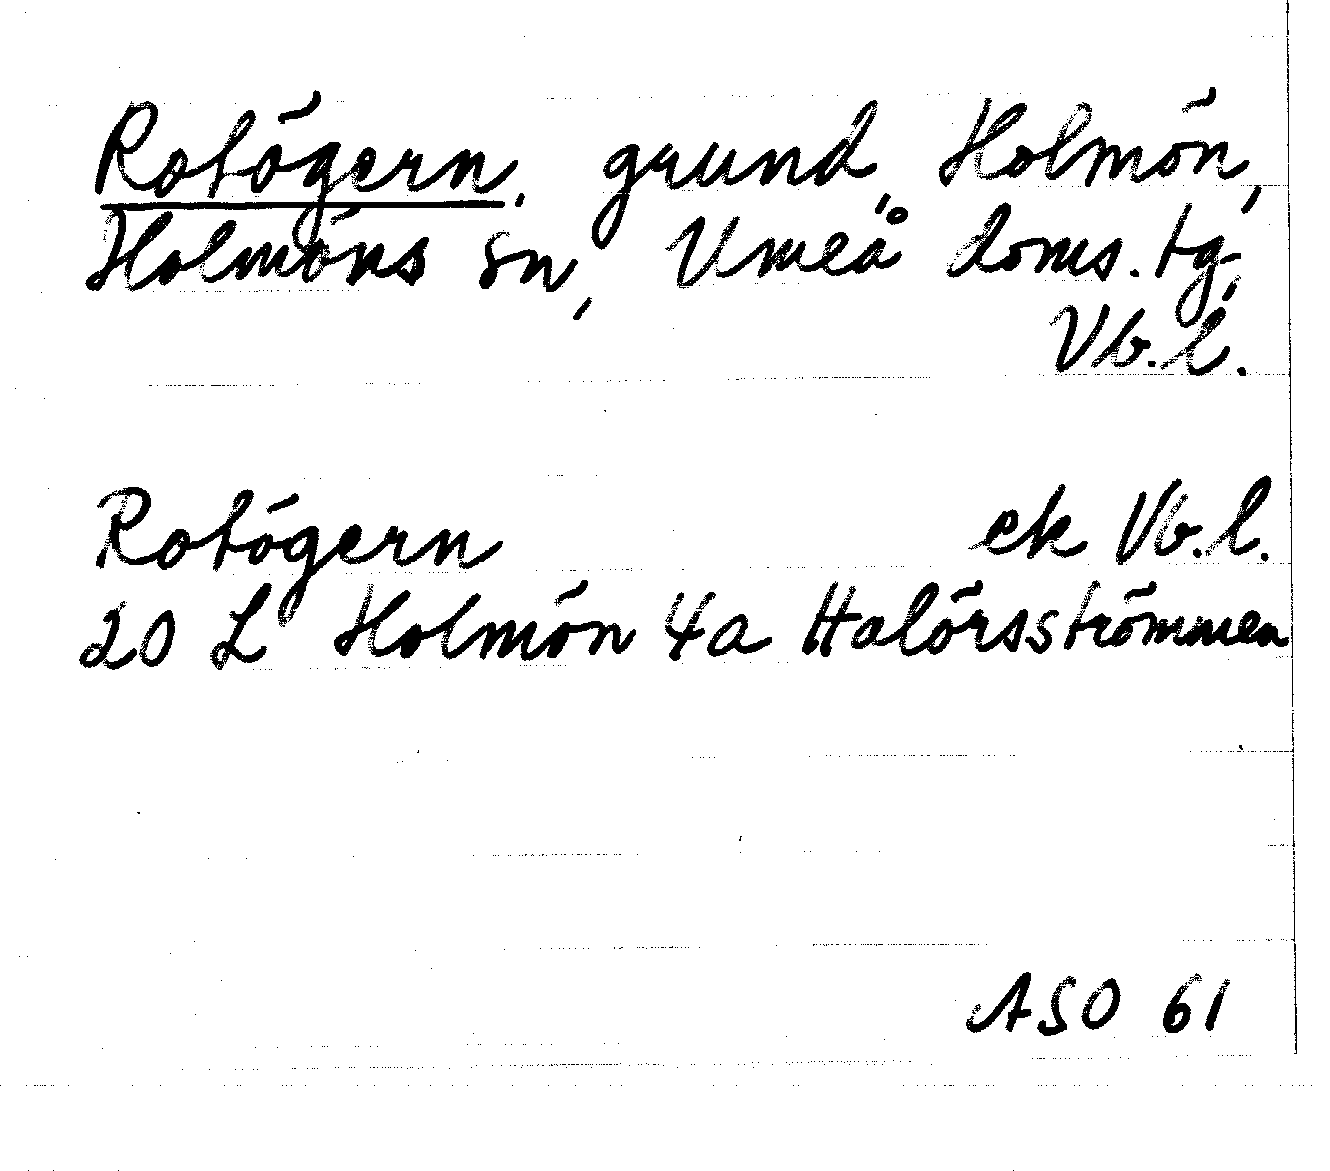 Rotögern, grund, Holmön,
Holmöns sn, Umeå doms. tg,
Vb.l.
Rotögern ek Vb.l.
20 L Holmön 4a Halörsströmmen
ASO 61